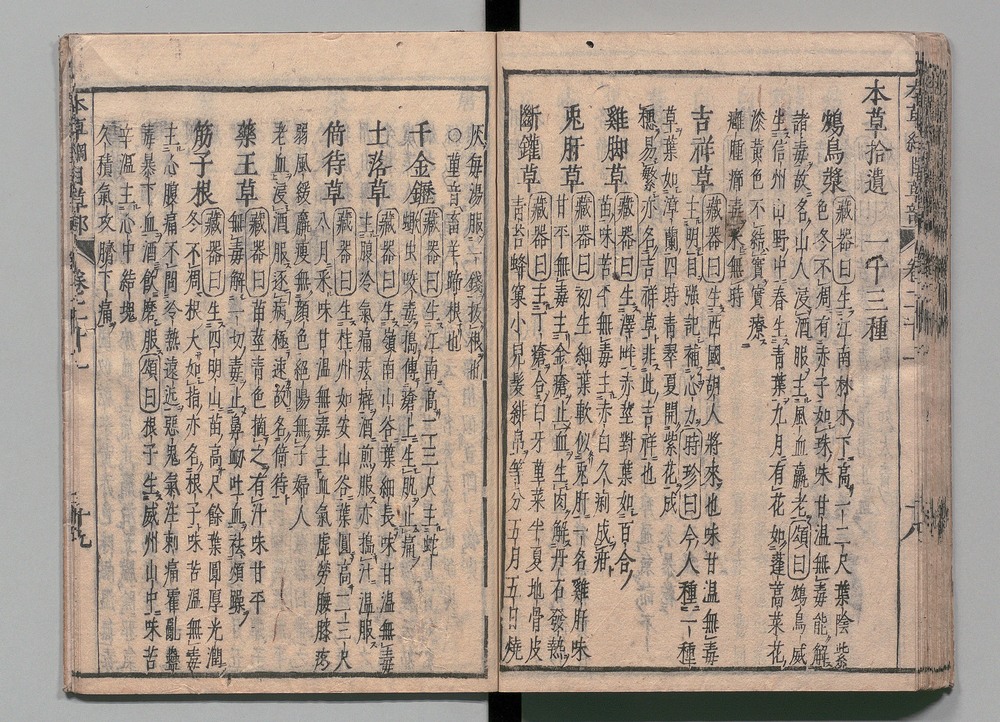 本草拾遺 一十三種
鴆鳥漿 藏器曰生江南林木下高一二尺葉陰紫
色冬不凋有赤子如珠味甘溫無毒能解
諸毒故名山人浸酒服主風血羸老頌曰鴆鳥威
生信州山野中春生青葉九月有花如蓬蒿菜花
淡黃色不結實療
癰腫癤毒
吉祥草 藏器曰生西國胡人將來也味甘溫無毒
主明目強記補心力時珍曰今人種一種
草葉如漳蘭四時青翠夏開紫花成
穗易繁亦名吉祥草非此吉祥也
雞脚草 藏器曰生澤畔赤莖對葉如百合
苗味苦平無毒主赤白久痢成疳
兎肝草 藏器曰初生細葉軟似兎肝一名雞肝味
甘平無毒主金瘡止血生肉解丹石發熱
斷鑵草 藏器曰主丁瘡合白牙菫菜半夏地骨皮
青苔蜂窠小兒髮緋帛等分五月五日燒
灰每湯服一錢拔根
董音畜羊蹄根也
千金鑼 藏器曰生江南高二三尺主蛇
蝎虫咬毒搗傅瘡上生肌止痛
土落草 藏器曰生嶺南山谷葉細長味甘溫無毒
主腹冷氣痛痃癖酒煎服亦搗汁溫服
倚待草 藏器曰生桂州如安山谷葉圓高二三尺
八月采味甘溫無毒主血氣虛勞腰膝疼
弱風緩羸瘦無顏色絕陽無子婦人
老血浸酒服逐病極速故名倚待
藥王草 藏器曰苗莖青色摘之有汁味甘平
無毒解一切毒止鼻衄吐血祛煩躁
筋子根 藏器曰生四明山苗高尺餘葉圓厚光潤
冬不凋根大如指亦名根子味苦溫無毒
主心腹痛不問冷熱遠近惡鬼氣注刺痛霍亂蠱
毒暴下血酒飲磨服頌曰根子生威州山中味苦
辛溫主心中結塊
久積氣攻臍下痛